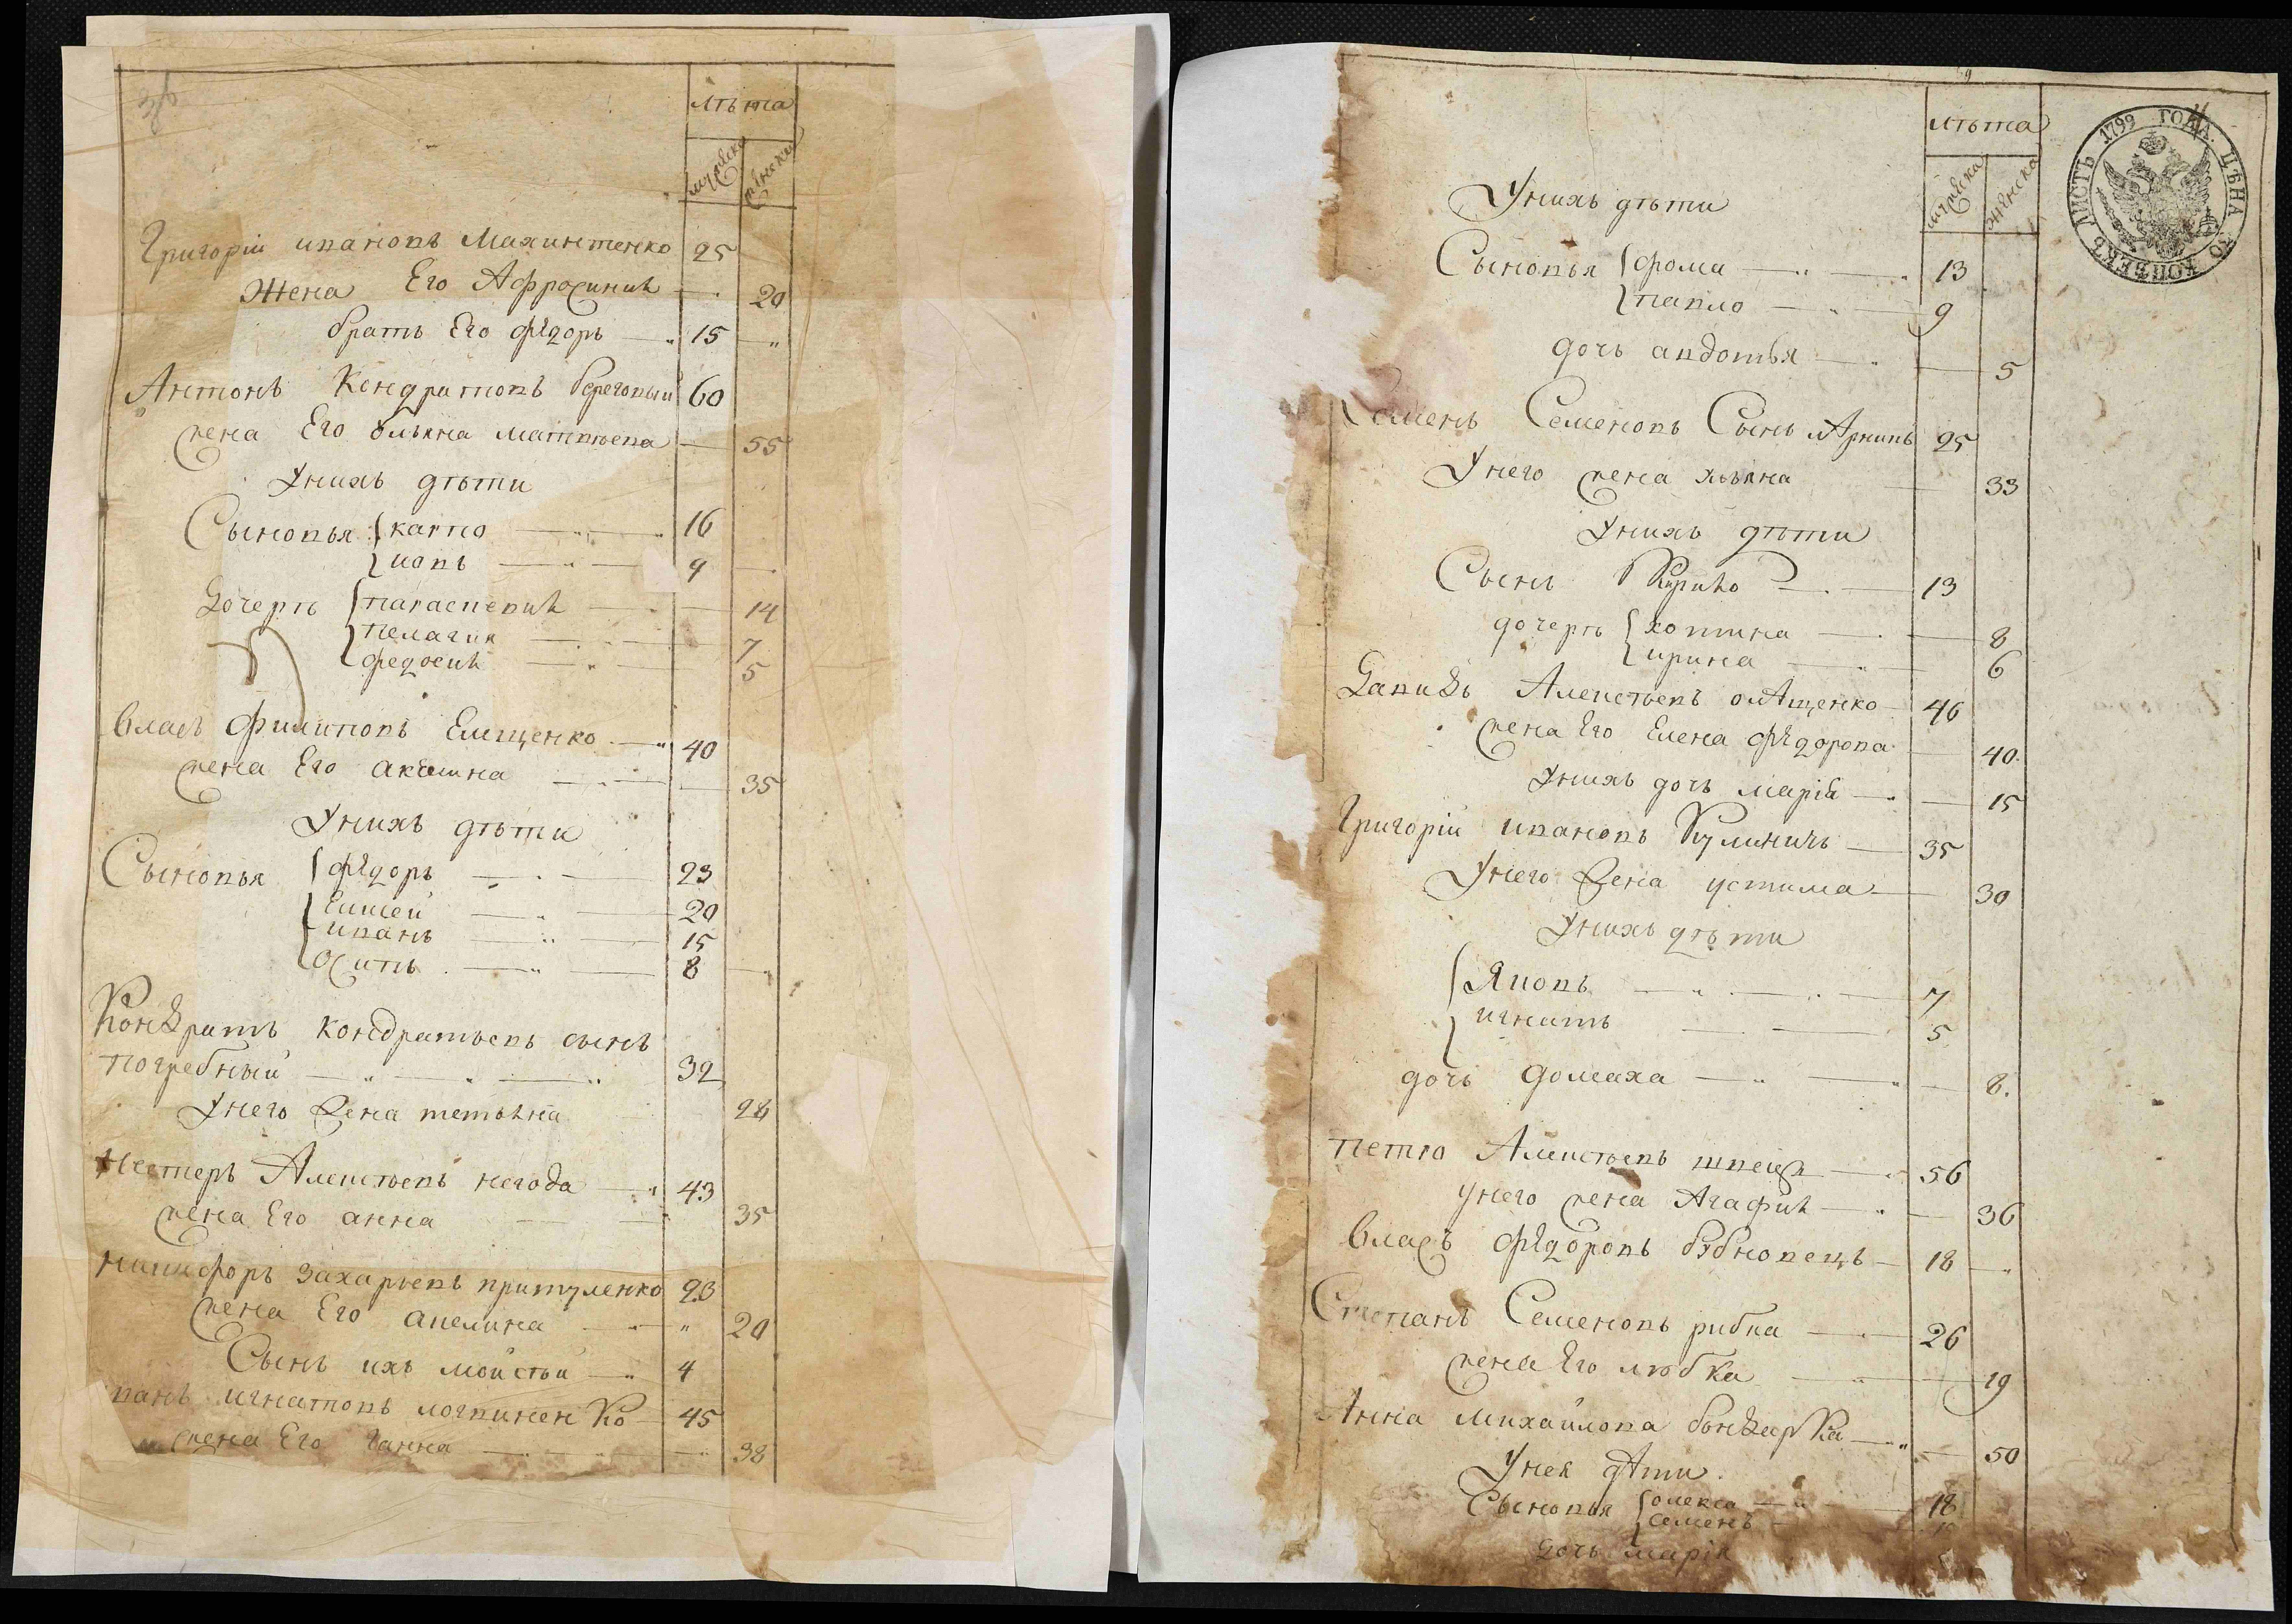 лѣта
мужеска женска
Григорій ивановъ Махинтенко 25
Жена Его Афросинія 20
братъ Его фѣдоръ 15
Антонъ Кондратовъ береговый 60
жена Его ольяна матвѣева 55
Унихъ дѣти
Сыновья карпо 16
иовъ 9
Дочерѣ параскевия 14
пелагия 7
федосия 5
Власъ филиповъ Елищенко 40
жена Его акилина 35
Унихъ дѣти
Сыновья фѣдоръ 23
Елисей 20
иванъ 15
Осипъ 8
Кондратъ кондратьевъ сынъ
погребный 32
Унего жена тетьяна 28
Нестеръ Алексѣевъ негода 43
жена Его анна 35
никифоръ захарьевъ притуленко 23
жена Его акелина 20
Сынъ ихъ мойсѣй 4
ванъ игнатовъ логвиненко 45
жена Его ганна 38
9
лѣта
мужеска женска
ЛИСТЪ 1799 ГОДА. ЦѢНА 30 КОПѢЕКЪ
Унихъ дѣти
Сыновья фома 13
павло 9
дочь авдотья 5
Семенъ Семеновъ Сынъ 25
Унего жена ульяна 33
Унихъ дѣти
Сынъ Кирило 13
дочерѣ хотина 8
ирина 6
Давидъ Алексѣевъ олѣщенко 46
жена Его Елена фѣдорова 40
Унихъ дочь марія 15
Григорій ивановъ Кулиничъ 35
Унего жена устима 30
Унихъ дѣти
Яковъ 7
игнатъ 5
дочь домаха 8
петро Алексѣевъ швецъ 56
унего жена Агафия 36
Власъ фѣдоровъ бубновецъ 18
Степанъ Семеновъ рибка 26
жена Его любка 19
Анна михайлова бондарка 50
Унея дѣти
Сыновья олекса 18
семенъ
дочь марія